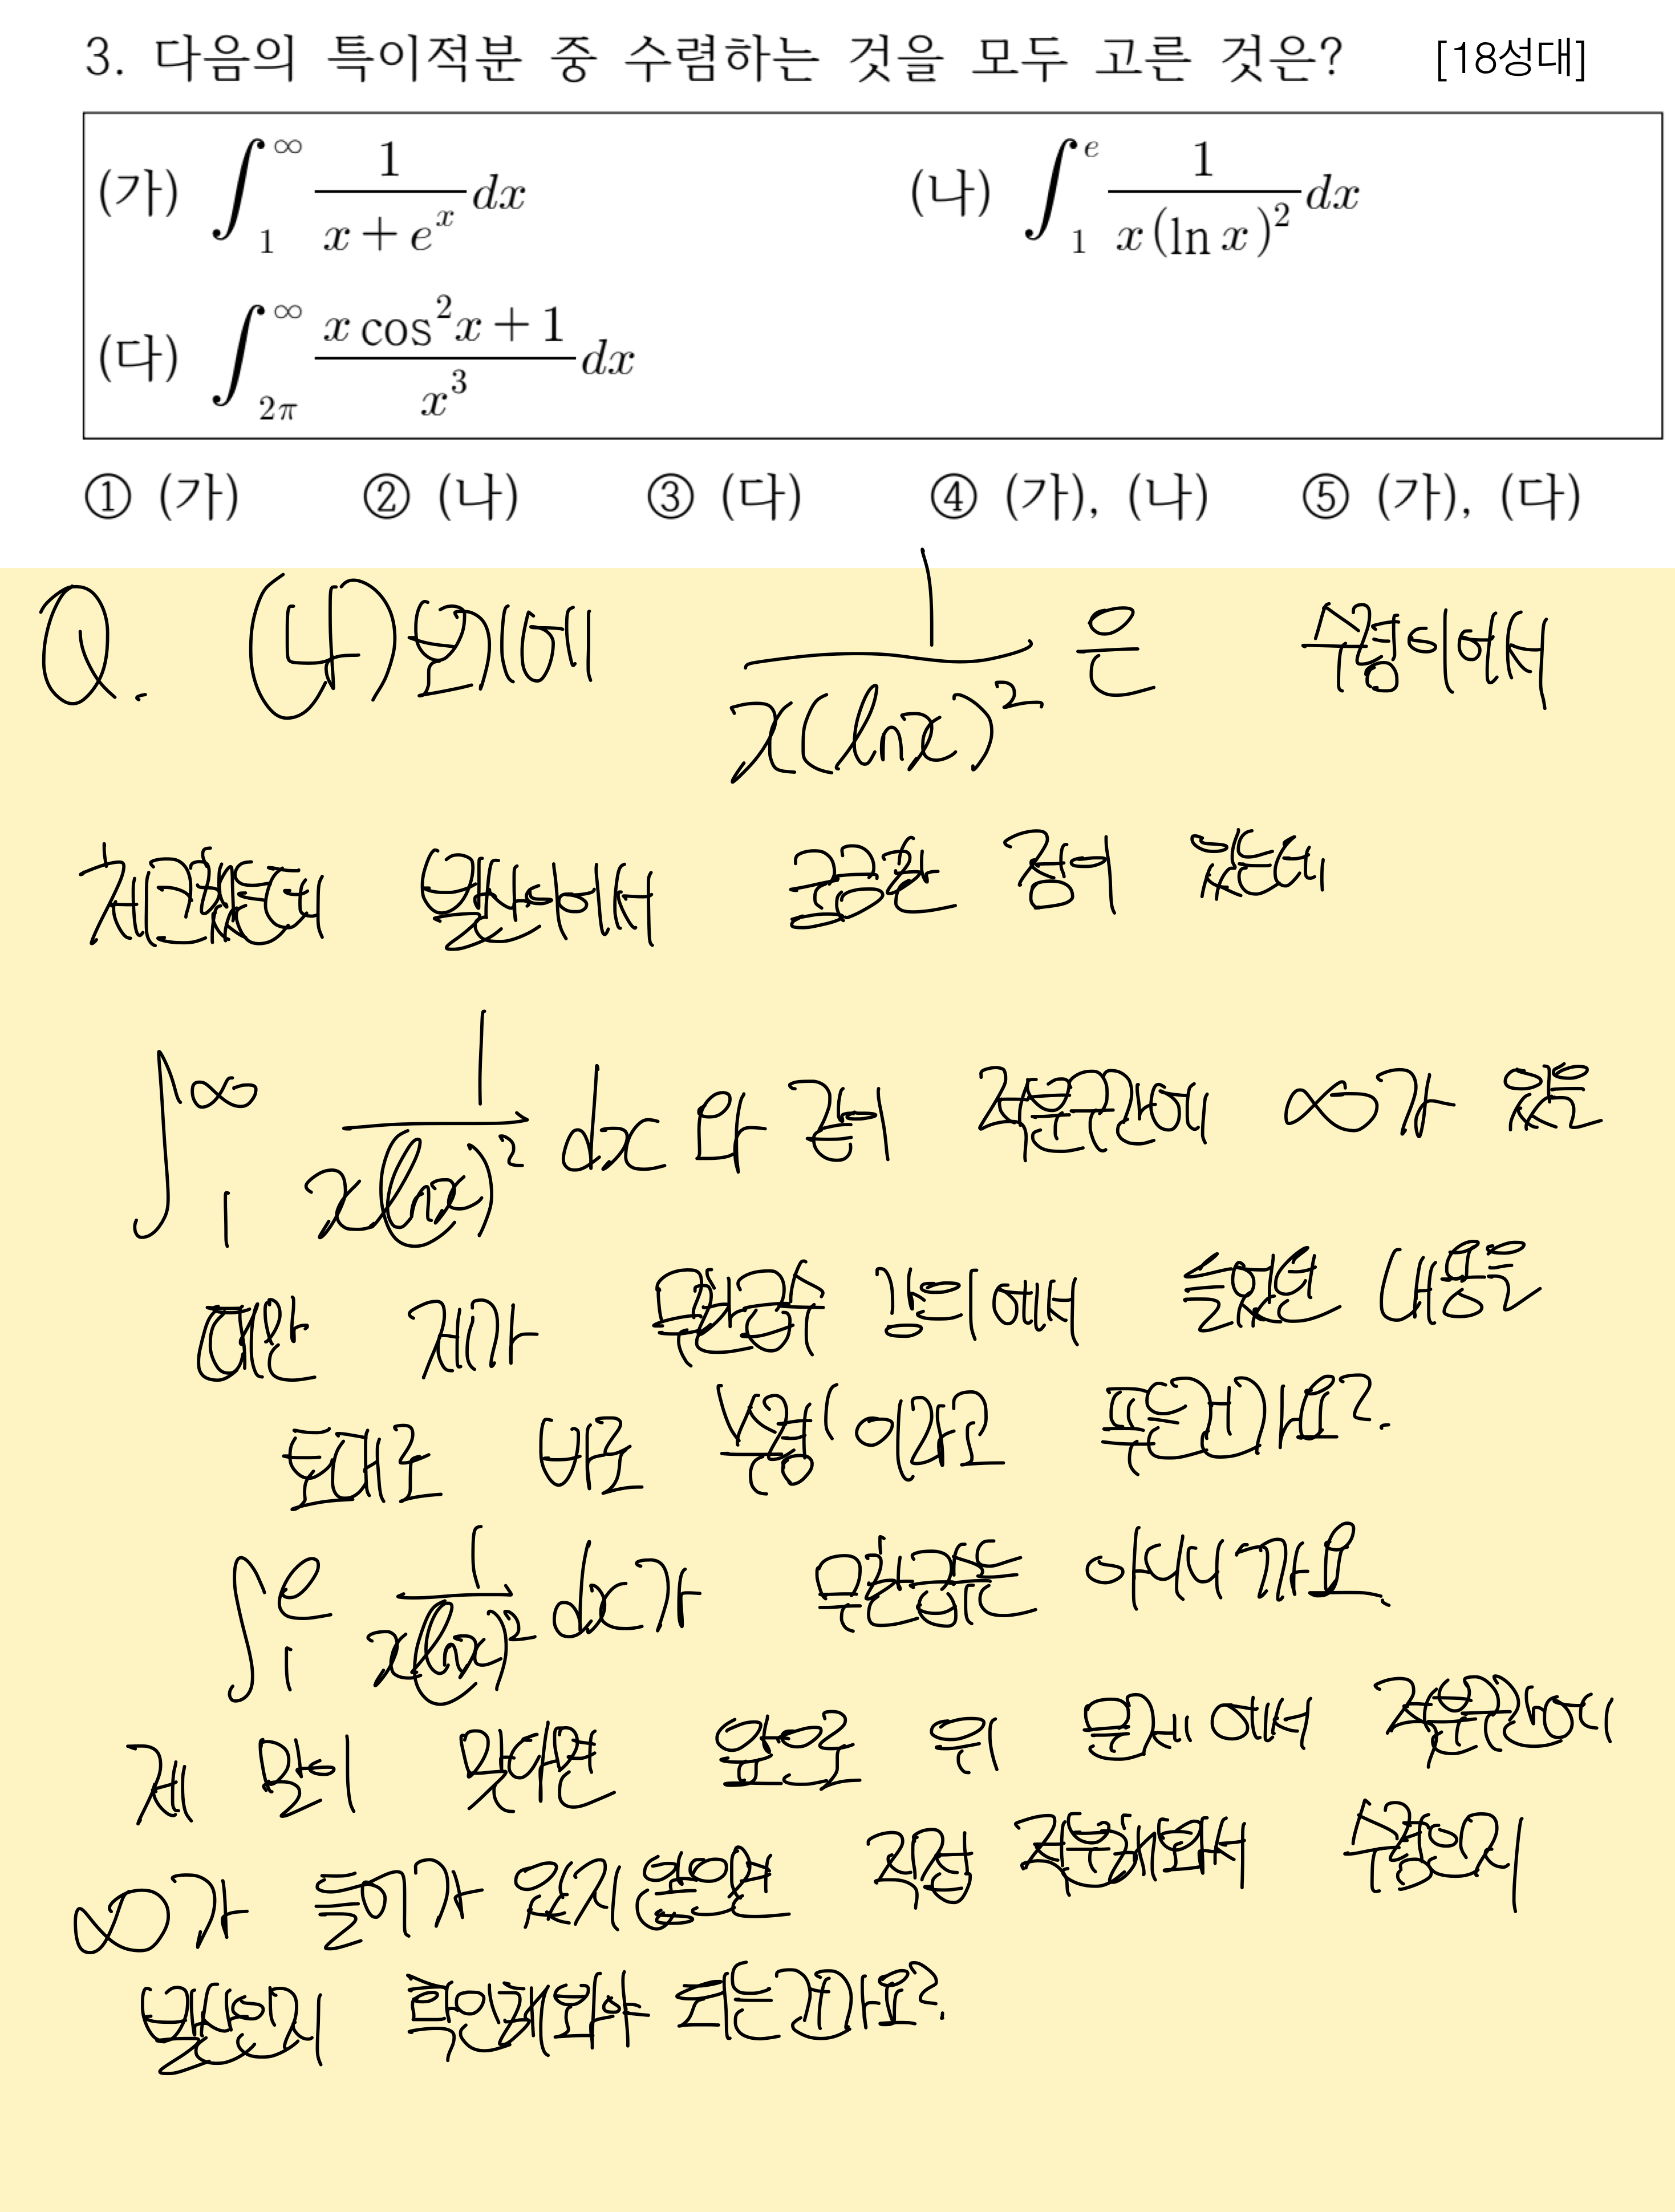 3. 다음의 특이적분 중 수렴하는 것을 모두 고른 것은? [18성대]
(가) ∫_1^∞ 1/(x+e^x) dx (나) ∫_1^e 1/(x(ln x)^2) dx
(다) ∫_{2π}^∞ (x cos^2 x+1)/x^3 dx
① (가) ② (나) ③ (다) ④ (가), (나) ⑤ (가), (다)
Q. (나)보기에 1/(x(lnx)^2) 은 수렴이어서
체크했는데 발산이어서 궁금한 점이 있는데
∫_1^∞ 1/(x(lnx)^2) dx 와 같이 적분구간에 ∞가 있을
때만 제가 무한급수 강의에서 들었던 내용을
토대로 바로 '수렴' 이라고 푸는건가요?
∫_1^e 1/(x(lnx)^2) dx가 무한급수는 아니니까요.
제 말이 맞다면 앞으로 위 문제에서 적분구간에
∞가 들어가 있지 않으면 직접 적분해봐서 수렴인지
발산인지 확인해봐야 되는건가요?